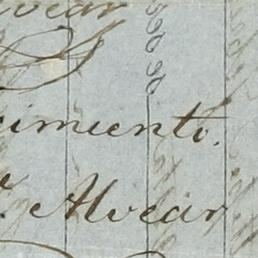 lvear
cimiento.
Alvear